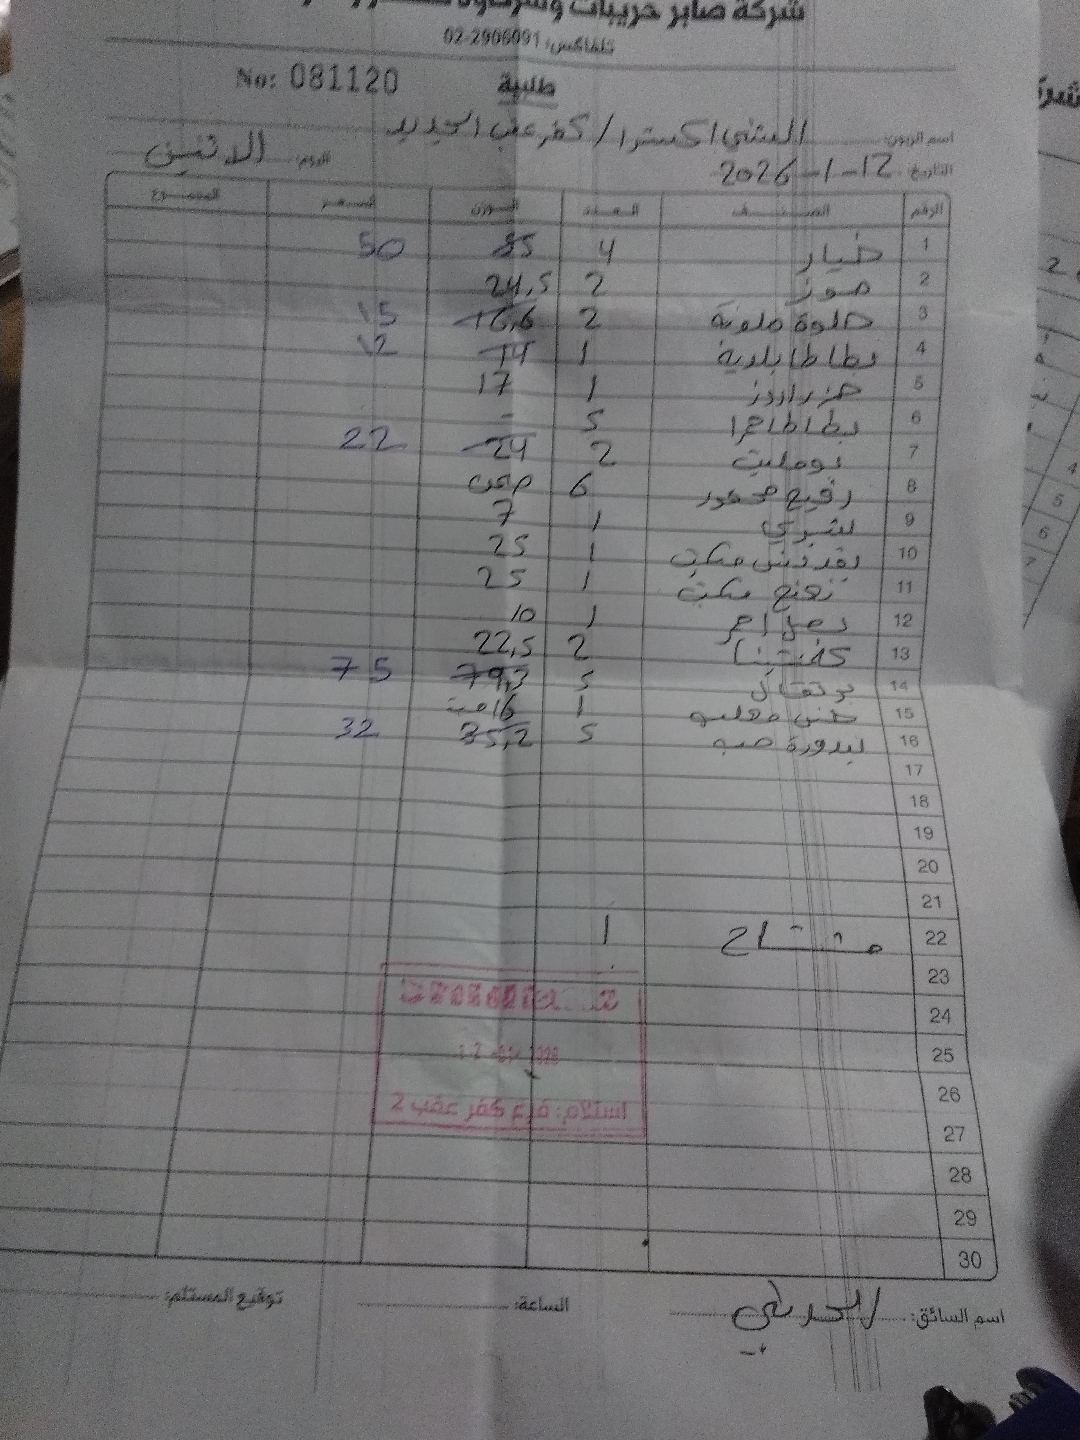 شركة صابر حريبات
تلفاكس: 02-2906091
No: 081120
طلبية
اسم الزبون: المثنى اكسترا / كفر عقب الجديد
التاريخ: 12-1-2026 اليوم: الاثنين
الرقم الصنف العدد الوزن السعر المجموع
1 خيار 4 85 50
2 موز 2 24,5
3 حلوة ملونة 2 16,6 15
4 بطاطا بلدية 1 14 12
5 1 17
6 بطاطا حمرا 5 -
7 بومليت 2 24 22
8 6 صحن
9 شيري 1 7
10 بقدونس مكتب 1 25
11 نعنع مكتب 1 25
12 بصل احمر 1 10
13 كلمنتينا 2 22,5
14 برتقال 5 79,3 75
15 خس 1 16
16 بندورة حب 5 35,2 32
17
18
19
20
21
22 مشتاح 1
23
24
25
26
27
28
29
30
استلام: فرع كفر عقب 2
اسم السائق: الساعة: توقيع المستلم: